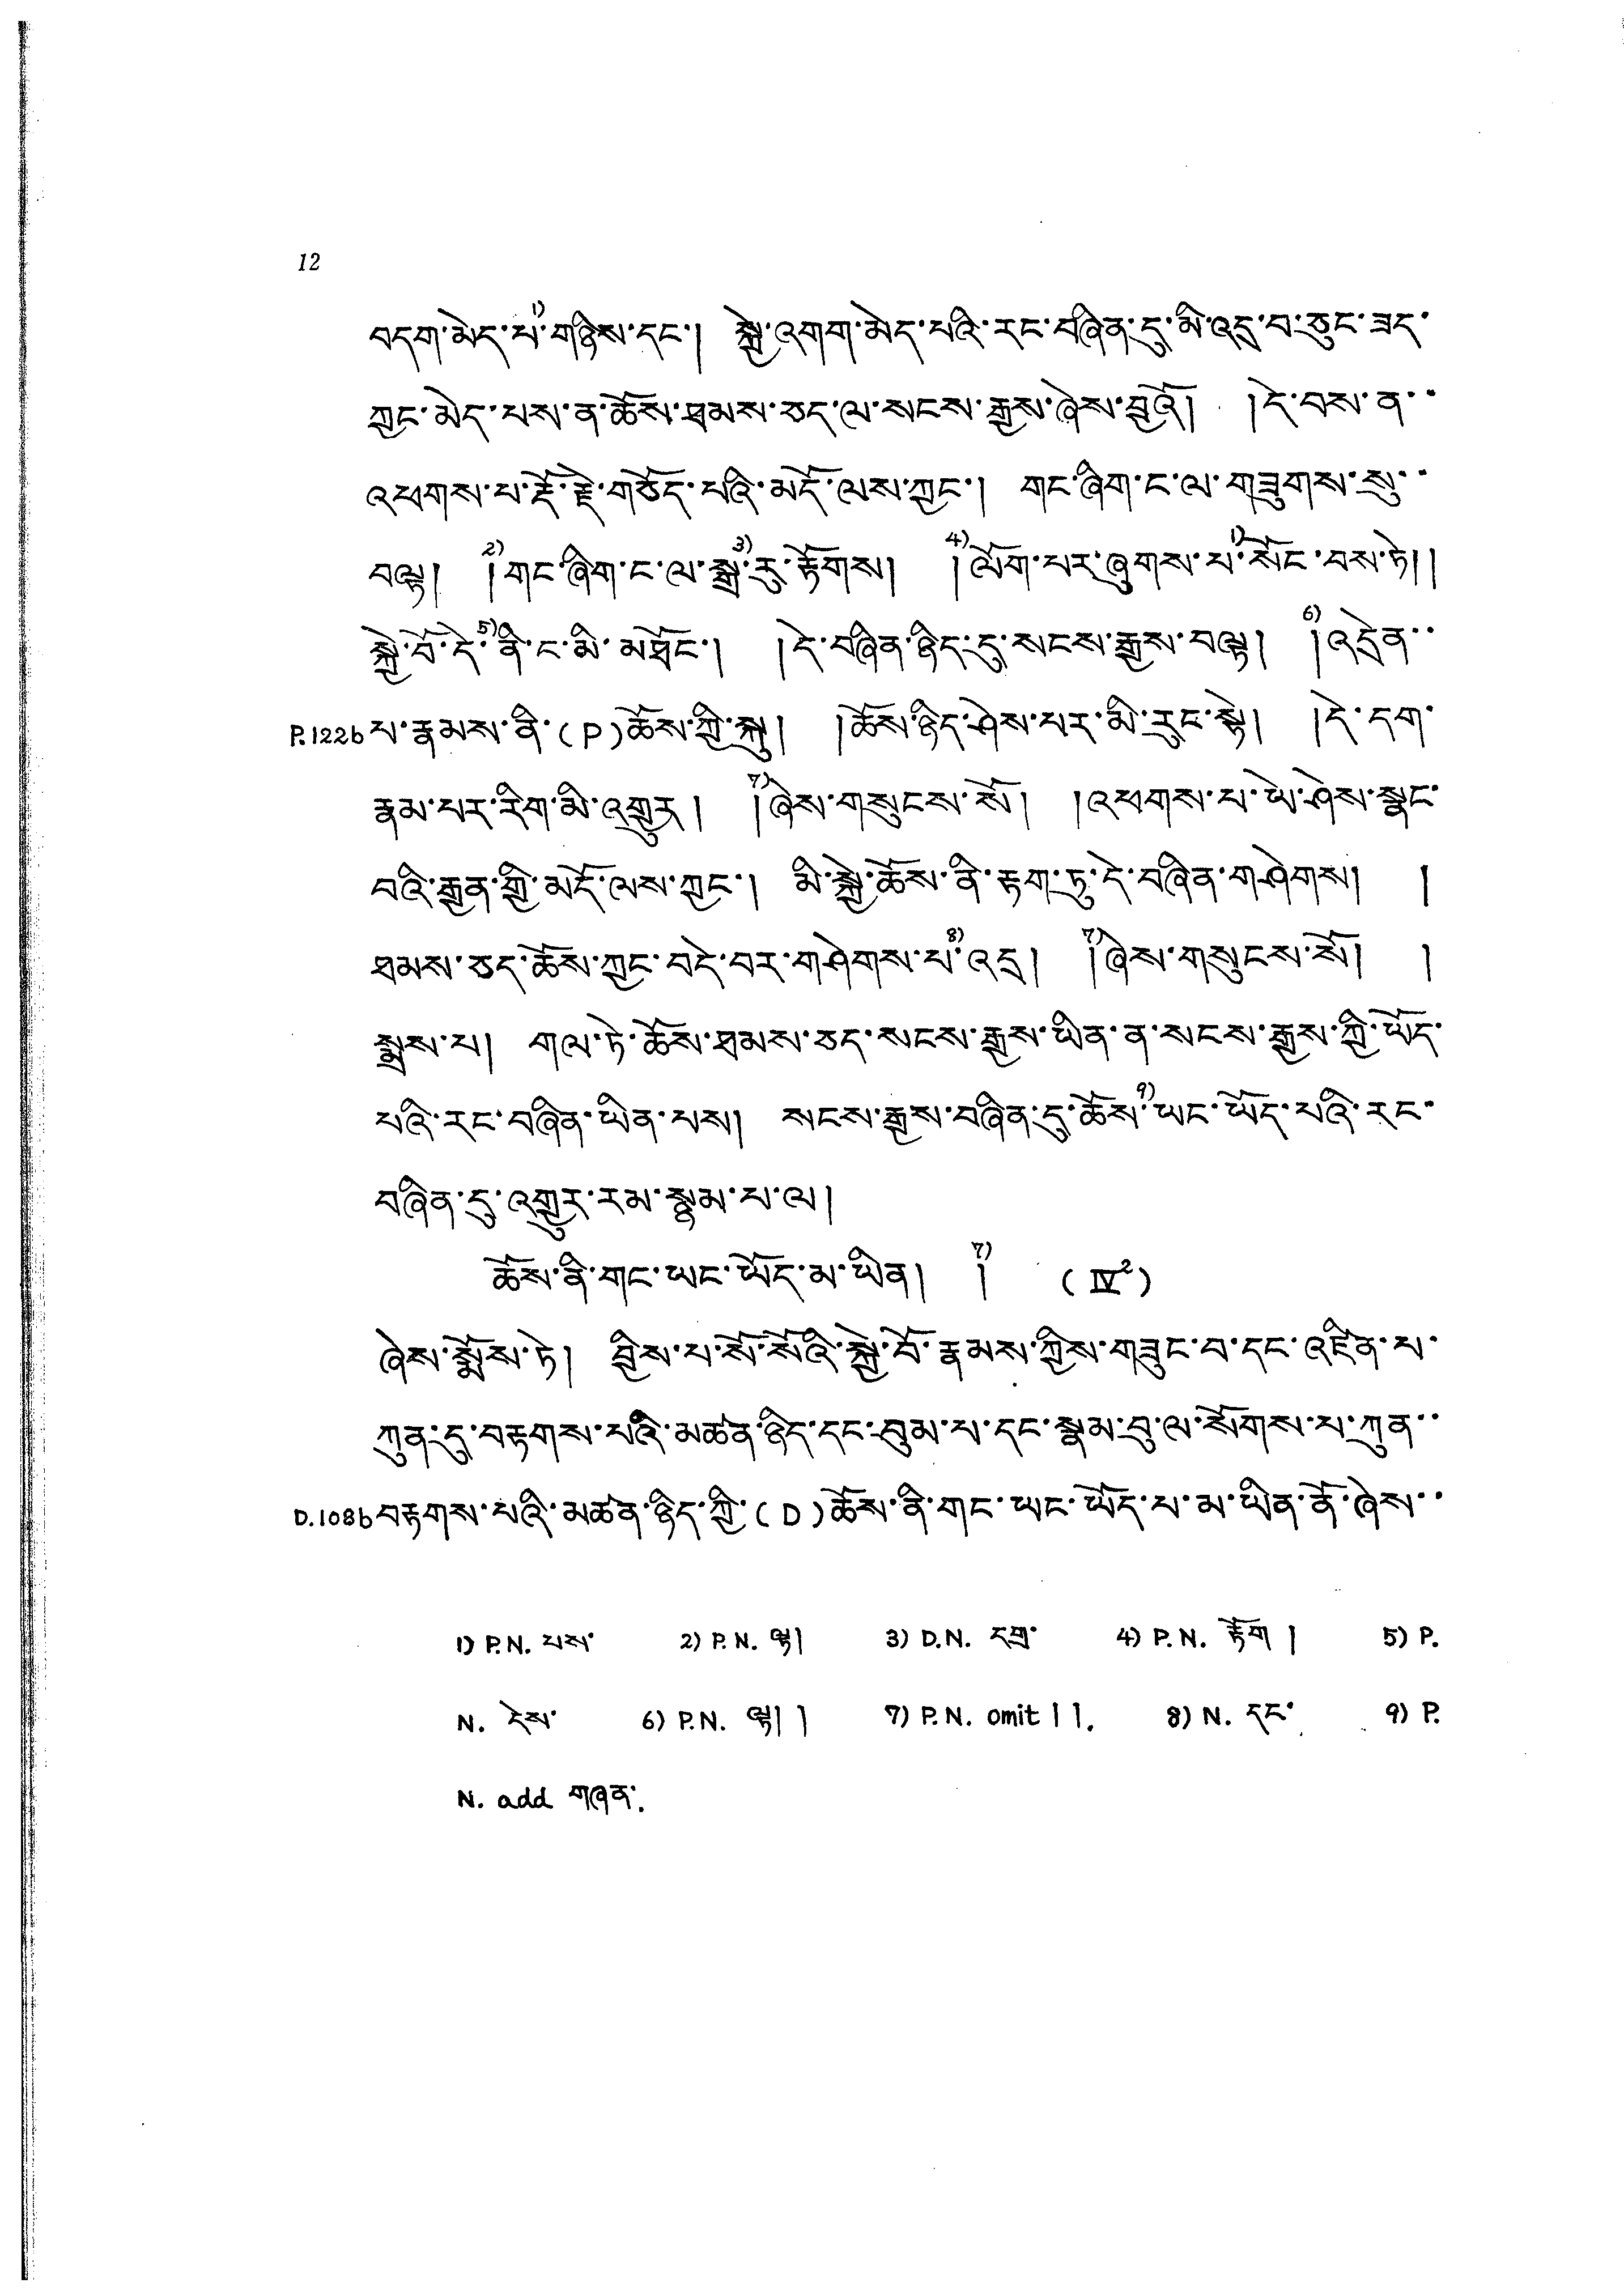 12
བདག་མེད་པ་1)གཉིས་དང་། སྐྱེ་འགག་མེད་པའི་རང་བཞིན་དུ་མི་འདྲ་བ་ཅུང་ཟད་
ཀྱང་མེད་པས་ན་ཆོས་ཐམས་ཅད་ལ་སངས་རྒྱས་ཞེས་བྱའོ། །དེ་བས་ན་་
འཕགས་པ་རྡོ་རྗེ་གཅོད་པའི་མདོ་ལས་ཀྱང་། གང་ཞིག་ང་ལ་གཟུགས་སུ་་
བལྟ། 2)།གང་ཞིག་ང་ལ་སྒྲ་3)རུ་རྟོགས། 4)།ལོག་པར་ཞུགས་པ་1)སོང་བས་ཏེ།།
སྐྱེ་བོ་དེ་5)ནི་ང་མི་མཐོང་། །དེ་བཞིན་ཉིད་དུ་སངས་རྒྱས་བལྟ། 6)།འདྲེན་་
P.122b པ་རྣམས་ནི་(P)ཆོས་ཀྱི་སྐུ། །ཆོས་ཉིད་ཤེས་པར་མི་རུང་སྟེ། །དེ་དག་
རྣམ་པར་རིག་མི་འགྱུར། 7)།ཞེས་གསུངས་སོ། །འཕགས་པ་ཡེ་ཤེས་སྣང་
བའི་རྒྱན་གྱི་མདོ་ལས་ཀྱང་། མི་སྐྱེ་ཆོས་ནི་རྟག་ཏུ་དེ་བཞིན་གཤེགས། །
ཐམས་ཅད་ཆོས་ཀྱང་བདེ་བར་གཤེགས་པ་8)འདྲ། 7)།ཞེས་གསུངས་སོ། །
སྨྲས་པ། གལ་ཏེ་ཆོས་ཐམས་ཅད་སངས་རྒྱས་ཡིན་ན་སངས་རྒྱས་ཀྱི་ཡོད་
པའི་རང་བཞིན་ཡིན་པས། སངས་རྒྱས་བཞིན་དུ་ཆོས་9)ཡང་ཡོད་པའི་རང་
བཞིན་དུ་འགྱུར་རམ་སྙམ་པ་ལ།
ཆོས་ནི་གང་ཡང་ཡོད་མ་ཡིན། 7)། (Ⅳ²)
ཞེས་སྨོས་ཏེ། བྱིས་པ་སོ་སོའི་སྐྱེ་བོ་རྣམས་ཀྱིས་གཟུང་བ་དང་འཛིན་པ་
ཀུན་དུ་བརྟགས་པའི་མཚན་ཉིད་དང་བུམ་པ་དང་སྣམ་བུ་ལ་སོགས་པ་ཀུན་་
D.108b བརྟགས་པའི་མཚན་ཉིད་ཀྱི་(D)ཆོས་ནི་གང་ཡང་ཡོད་པ་མ་ཡིན་ནོ་ཞེས་་
1) P.N. པས་ 2) P.N. ལྟ། 3) D.N. དགྲ་ 4) P.N. རྟོག། 5) P.
N. དེས་ 6) P.N. ལྟ།། 7) P.N. omit །།. 8) N. དང་ 9) P.
N. add གཞན་.